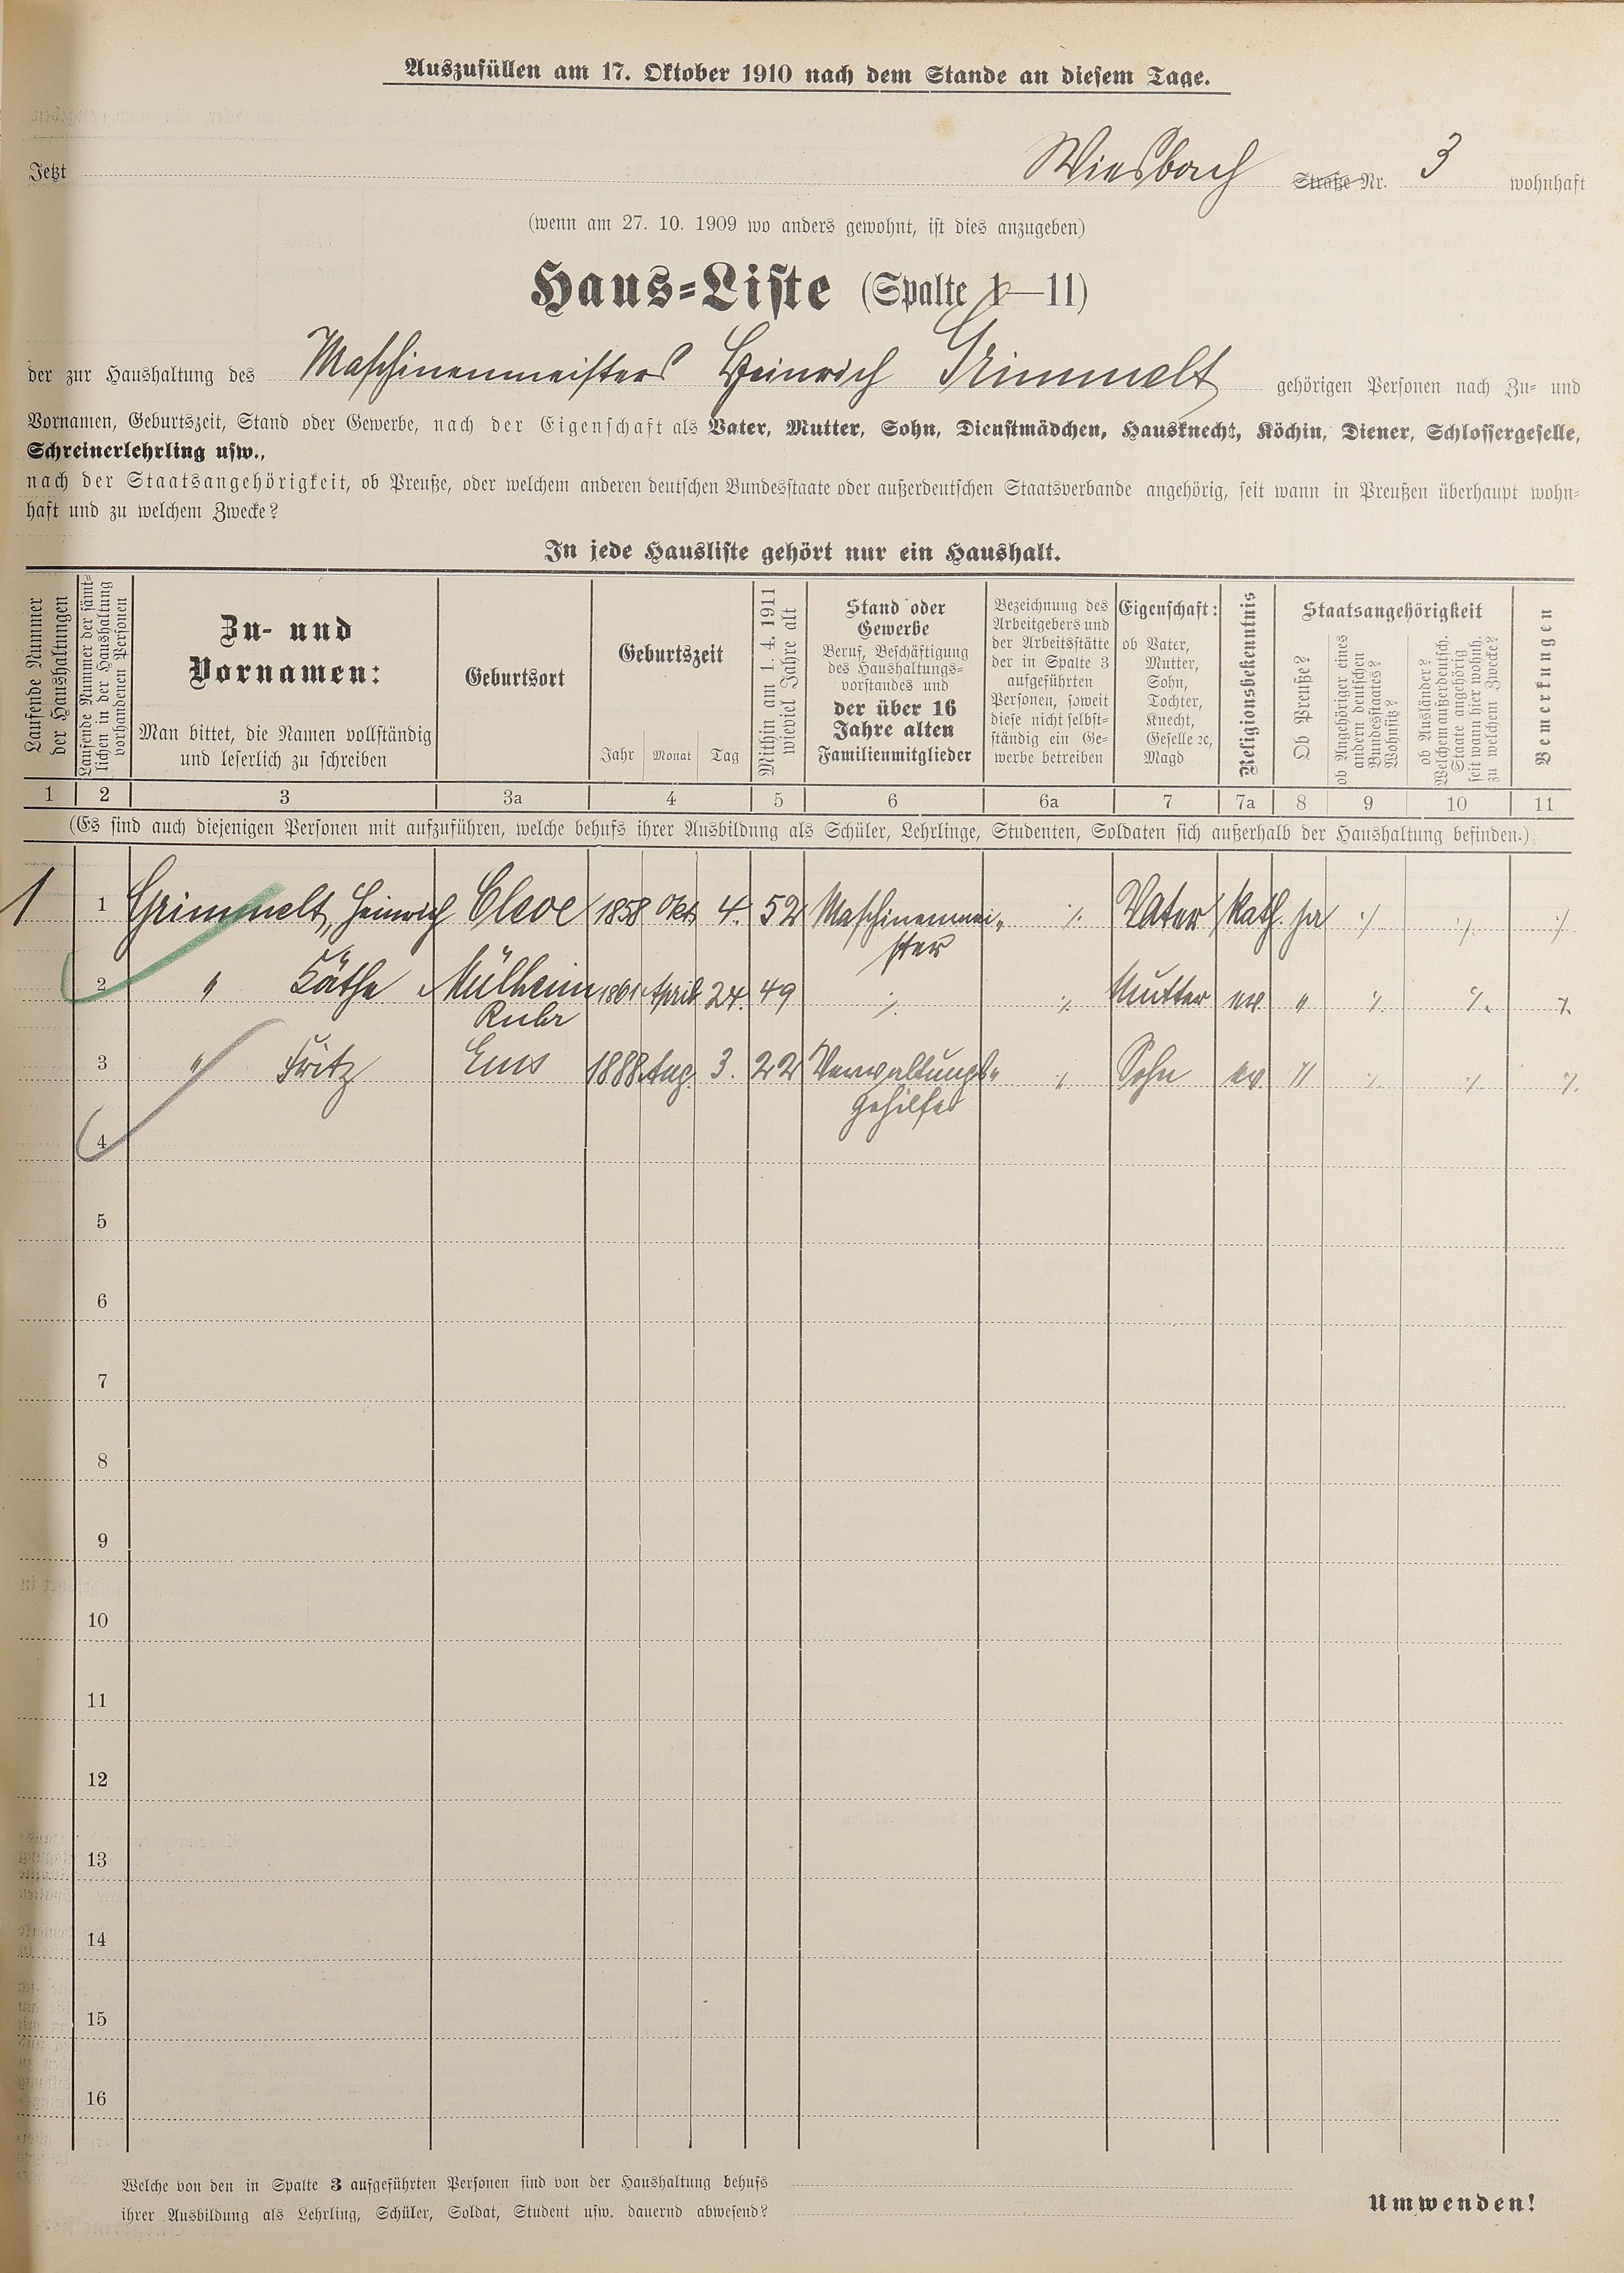 Auszufüllen am 17. Oktober 1910 nach dem Stande an diesem Tage.
Jetzt Wiesbach Straße Nr. 3 wohnhaft
(wenn am 27. 10. 1909 wo anders gewohnt, ist dies anzugeben)
Haus-Liste (Spalte 1—11)
der zur Haushaltung des Maschinenmeisters Heinrich Grimmelt gehörigen Personen nach Zu- und
Vornamen, Geburtszeit, Stand oder Gewerbe, nach der Eigenschaft als Vater, Mutter, Sohn, Dienstmädchen, Hausknecht, Köchin, Diener, Schlossergeselle,
Schreinerlehrling usw.,
nach der Staatsangehörigkeit, ob Preuße, oder welchem anderen deutschen Bundesstaate oder außerdeutschen Staatsverbande angehörig, seit wann in Preußen überhaupt wohn-
haft und zu welchem Zwecke?
In jede Hausliste gehört nur ein Haushalt.
Laufende Nummer
der Haushaltungen
Laufende Nummer der sämt-
lichen in der Haushaltung
vorhandenen Personen
Zu- und
Vornamen:
Man bittet, die Namen vollständig
und leserlich zu schreiben
Geburtsort
Geburtszeit
Jahr Monat Tag
Mithin am 1. 4. 1911
wieviel Jahre alt
Stand oder
Gewerbe
Beruf, Beschäftigung
des Haushaltungs-
vorstandes und
der über 16
Jahre alten
Familienmitglieder
Bezeichnung des
Arbeitgebers und
der Arbeitsstätte
der in Spalte 3
aufgeführten
Personen, soweit
diese nicht selbst-
ständig ein Ge-
werbe betreiben
Eigenschaft:
ob Vater,
Mutter,
Sohn,
Tochter,
Knecht,
Geselle ꝛc,
Magd
Religionsbekenntnis
Staatsangehörigkeit
Ob Preuße?
ob Angehöriger eines
andern deutschen
Bundesstaates?
Wohnsitz?
ob Ausländer?
Welchem außerdeutsch.
Staate angehörig
seit wann hier wohnh.
zu welchem Zwecke?
Bemerkungen
1 2 3 3a 4 5 6 6a 7 7a 8 9 10 11
(Es sind auch diejenigen Personen mit aufzuführen, welche behufs ihrer Ausbildung als Schüler, Lehrlinge, Studenten, Soldaten sich außerhalb der Haushaltung befinden.)
1 1 Grimmelt, Heinrich Cleve 1858 Okt. 4. 52 Maschinenmei- ⁒ Vater kath. ja ⁒ ⁒ ⁒
ster
2 " Käthe Mülheim 1861 April 24. 49 ⁒ ⁒ Mutter ev. " ⁒ ⁒ ⁒
Ruhr
3 " Fritz Ems 1888 Aug. 3. 22 Verwaltungs- ⁒ Sohn ev. " ⁒ ⁒ ⁒
gehilfe
4
5
6
7
8
9
10
11
12
13
14
15
16
Welche von den in Spalte 3 aufgeführten Personen sind von der Haushaltung behufs
ihrer Ausbildung als Lehrling, Schüler, Soldat, Student usw. dauernd abwesend?
Umwenden!